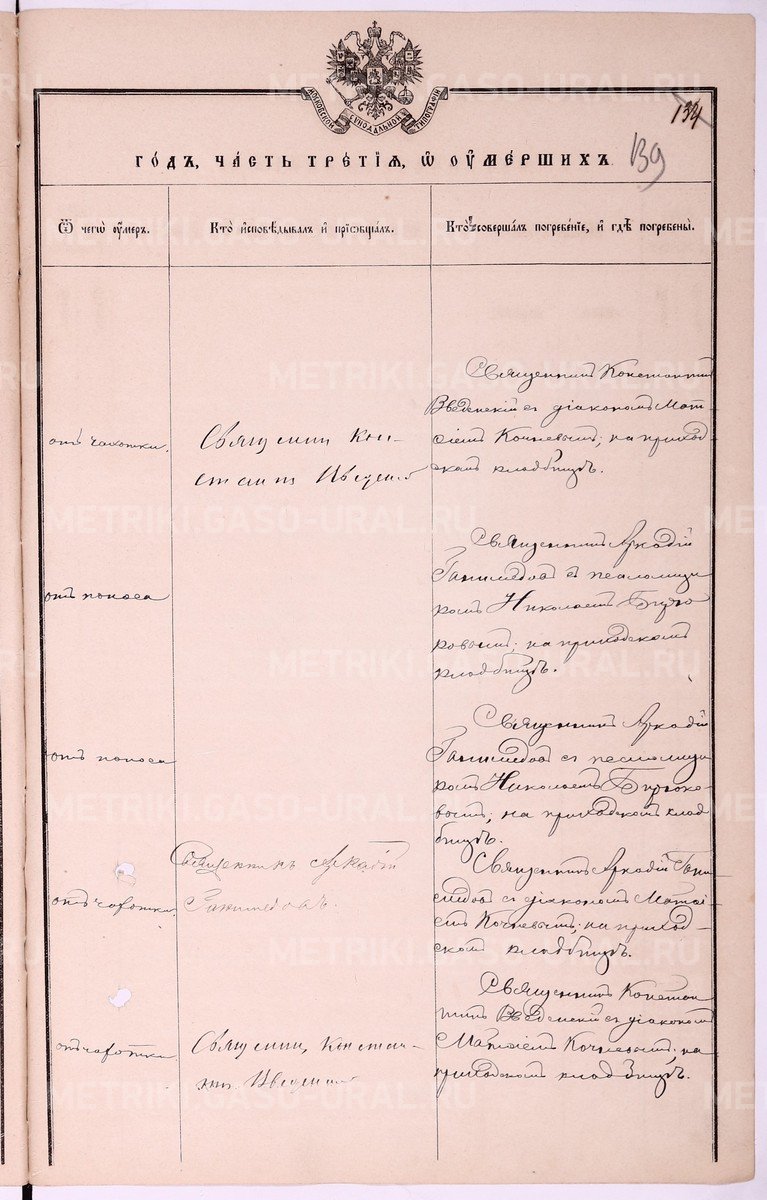 МОСКОВСКОЙ СѴНОДАЛЬНОЙ ТИПОГРАФІИ
134
139
ГО́ДЪ, ЧА́СТЬ ТРЕ́ТІѦ, Ѡ҆ ОУ҆МЕ́РШИХЪ.
Ѿ чегѡ̀ оу҆́меръ.
Кто̀ и҆сповѣ́дывалъ и҆ прїѡбща́лъ.
Кто̀ соверша́лъ погребе́нїе, и҆ гдѣ̀ погребены̀.
отъ чахотки.
Священник Кон-
стантин Введенс
Священникъ Константинъ
Введенскій съ діакономъ Мат-
ѳіемъ Кочневымъ; на приход-
скомъ кладбищѣ.
отъ поноса
Священникъ Аркадій
Ганимедовъ съ псаломщи
комъ Николаемъ
ковымъ; на приходскомъ
кладбищѣ.
отъ поноса
Священникъ Аркадій
Ганимедовъ съ псаломщи
комъ Николаемъ
вымъ; на приходскомъ клад
бищѣ.
отъ чахотки.
Священникъ Аркадій
Ганимедовъ.
Священникъ Аркадій Гани
медовъ съ діакономъ Матѳі
емъ Кочневымъ; на приход-
скомъ кладбищѣ.
отъ чахотки
Священник Констан-
тин Введенс
Священникъ Констан
тинъ Введенскій съ діакономъ
Матѳіемъ Кочневымъ; на
приходскомъ кладбищѣ.
METRIKI.GASO-URAL.RU